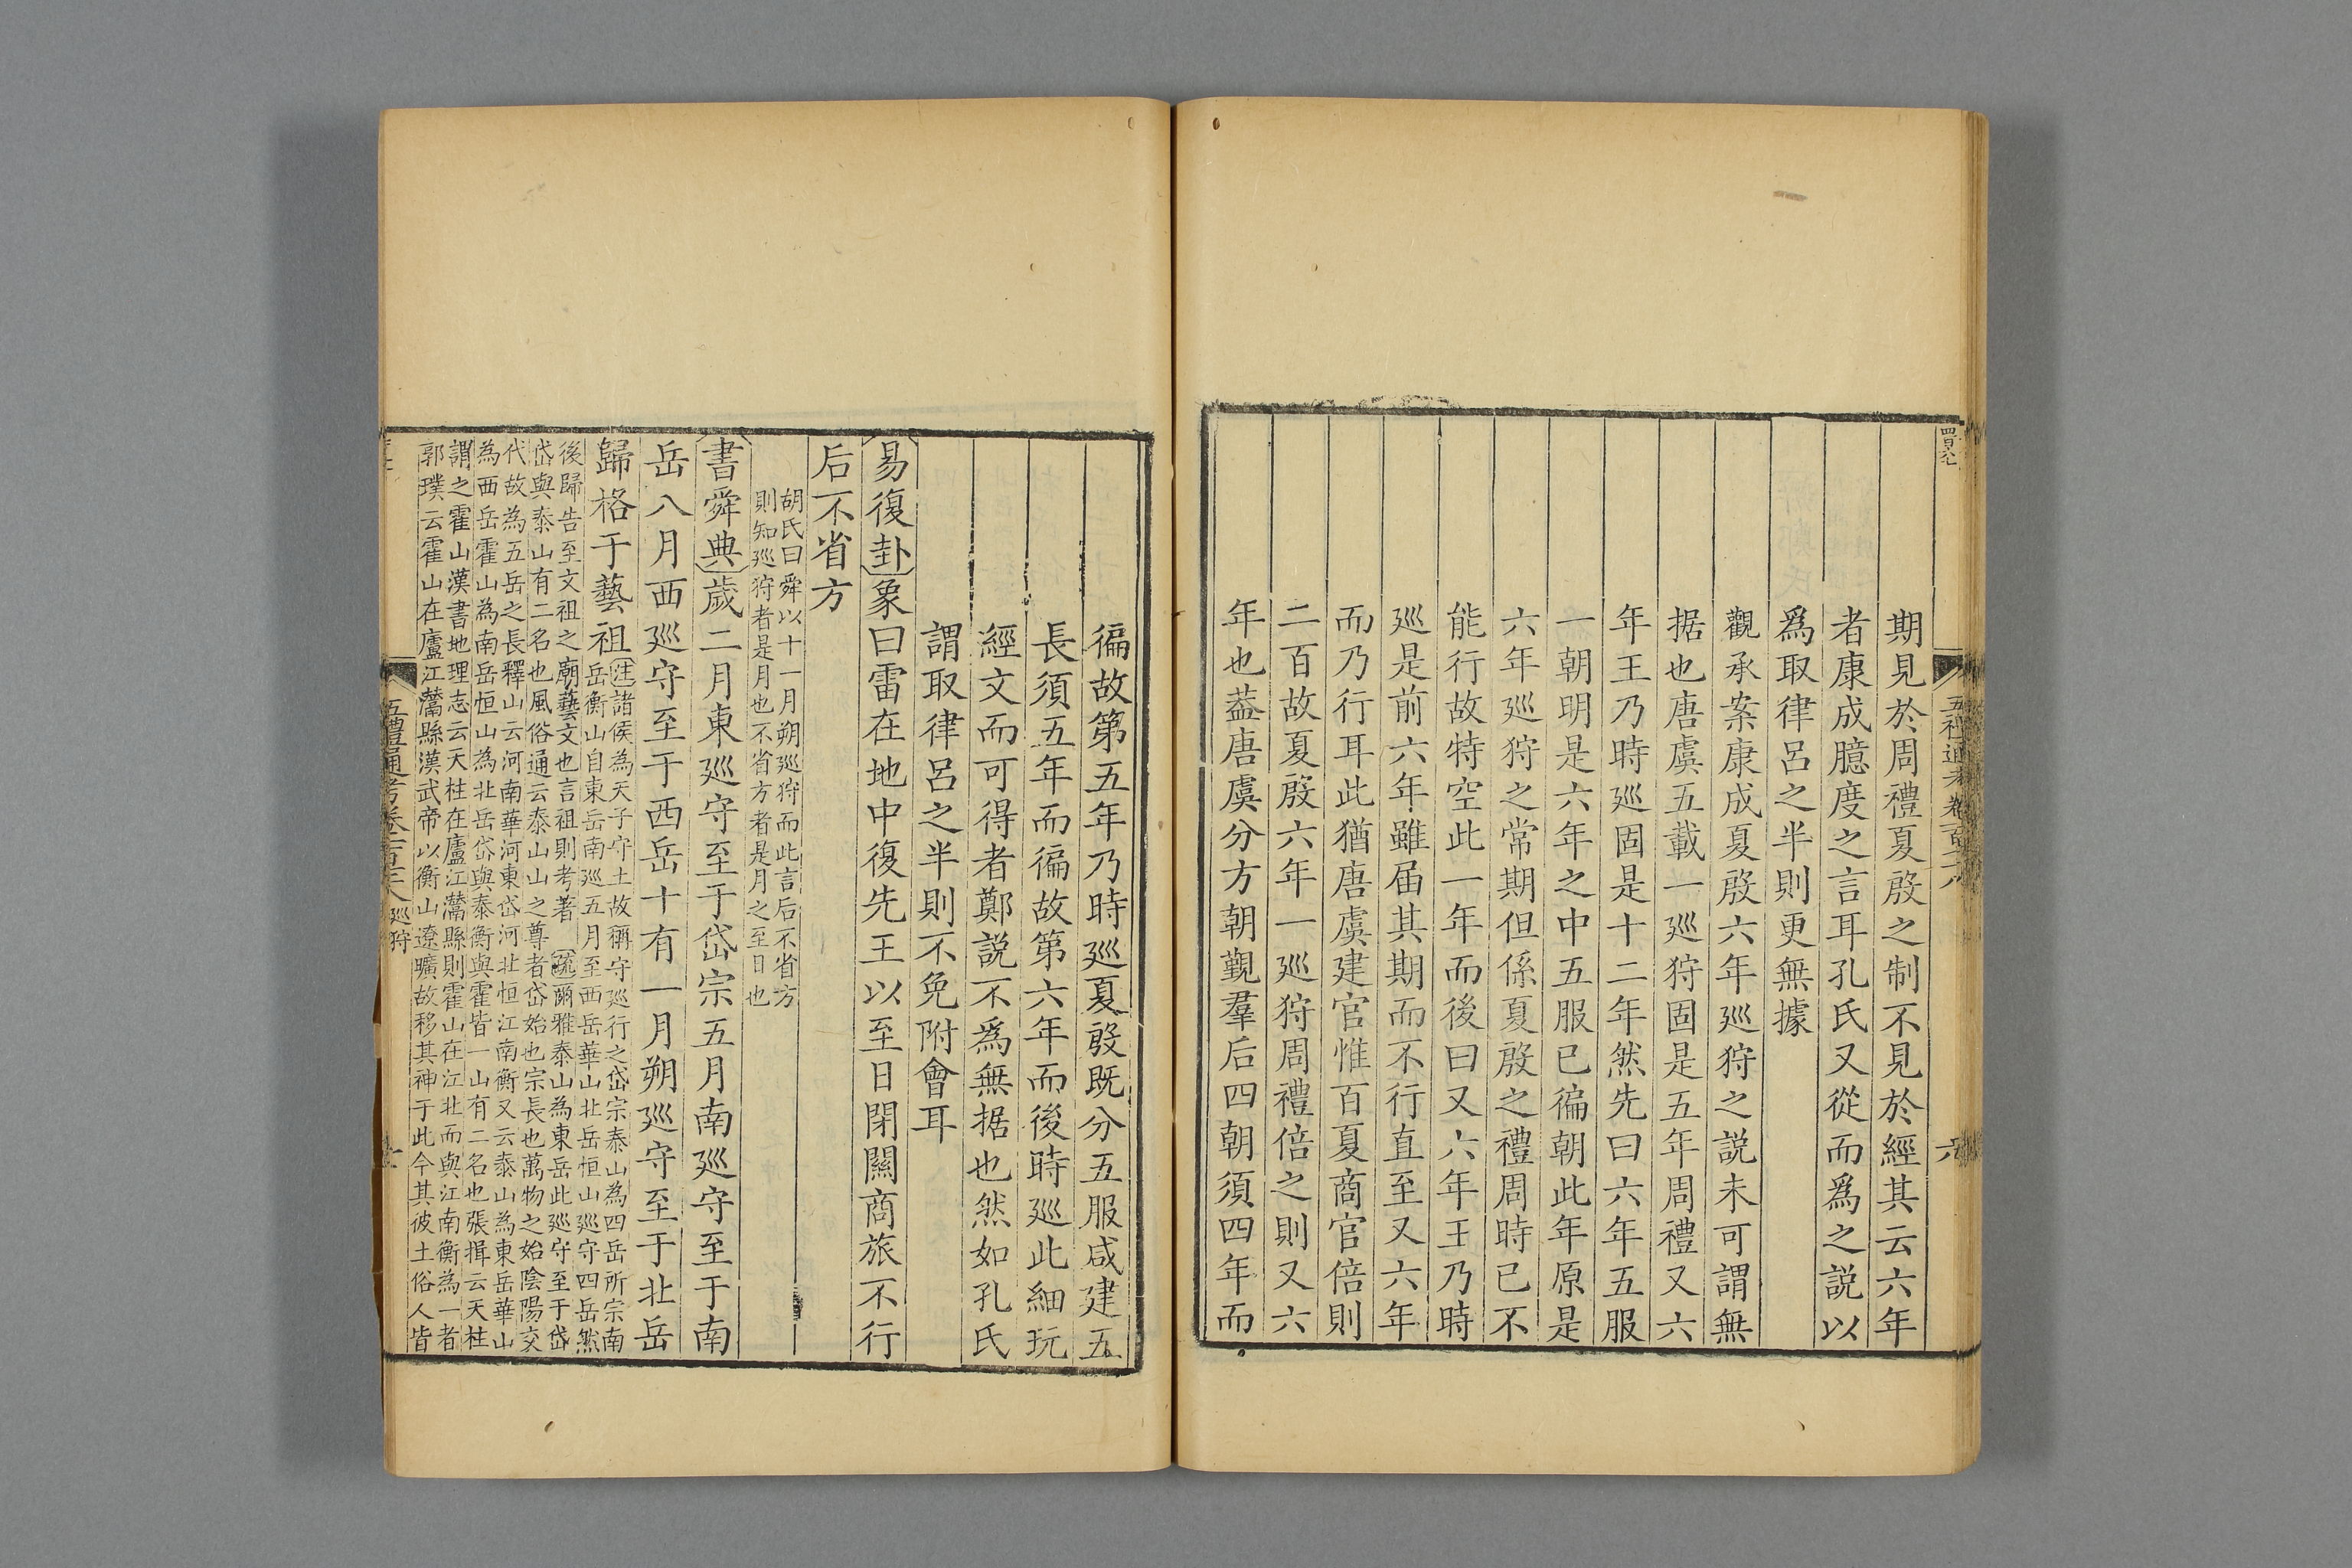 期見於周禮夏殷之制不見於經其云六年
者康成臆度之言耳孔氏又從而爲之説以
爲取律呂之半則更無據
觀承案康成夏殷六年巡狩之説未可謂無
据也唐虞五載一巡狩固是五年周禮又六
年王乃時巡固是十二年然先曰六年五服
一朝明是六年之中五服已徧朝此年原是
六年巡狩之常期但係夏殷之禮周時已不
能行故特空此一年而後曰又六年王乃時
巡是前六年雖届其期而不行直至又六年
而乃行耳此猶唐虞建官惟百夏商官倍則
二百故夏殷六年一巡狩周禮倍之則又六
年也葢唐虞分方朝覲羣后四朝須四年而
徧故第五年乃時巡夏殷既分五服咸建五
長須五年而徧故第六年而後時巡此細玩
經文而可得者鄭説不爲無据也然如孔氏
謂取律呂之半則不免附會耳
易復卦象曰雷在地中復先王以至日閉關商旅不行
后不省方
胡氏曰舜以十一月朔巡狩而此言后不省方
則知巡狩者是月也不省方者是月之至日也
書舜典歲二月東巡守至于岱宗五月南巡守至于南
岳八月西巡守至于西岳十有一月朔巡守至于北岳
歸格于藝祖
注諸侯為天子守土故稱守巡行之岱宗泰山為四岳所宗南
岳衡山自東岳南巡五月至西岳華山北岳恒山巡守四岳然
後歸告至文祖之廟藝文也言祖則考著 疏爾雅泰山為東岳此巡守至于岱
岱與泰山有二名也風俗通云泰山山之尊者岱始也宗長也萬物之始陰陽交
代故為五岳之長釋山云河南華河東岱河北恒江南衡又云泰山為東岳華山
為西岳霍山為南岳恒山為北岳岱與泰衡與霍皆一山有二名也張揖云天柱
謂之霍山漢書地理志云天柱在廬江灊縣則霍山在江北而與江南衡為一者
郭璞云霍山在廬江灊縣漢武帝以衡山遼曠故移其神于此今其彼土俗人皆
五禮通考卷一百七十八 巡狩